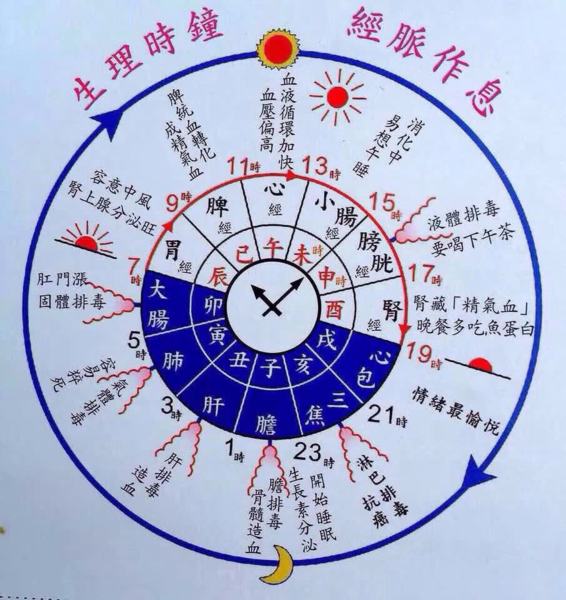 生理時鐘
經脈作息
血液循環加快
血壓偏高
消化中
易想午睡
液體排毒
要喝下午茶
腎藏「精氣血」
晚餐多吃魚蛋白
情緒最愉悅
淋巴排毒
抗癌
開始睡眠
生長素分泌
膽排毒
骨髓造血
肝排毒
造血
氣體排毒
容易猝死
肛門漲
固體排毒
容意中風
腎上腺分泌旺
脾統血轉化
成精氣血
11時
13時
15時
17時
19時
21時
23時
1時
3時
5時
7時
9時
心經
小腸經
膀胱經
腎經
心包
三焦
膽
肝
肺
大腸
胃經
脾經
午時
未時
申時
酉
戌
亥
子
丑
寅
卯
辰
巳